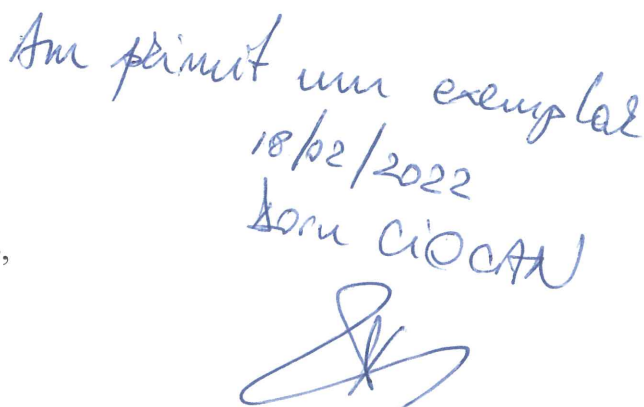 Am primit un exemplar
18/02/2022
Dorn CIOCAN
,